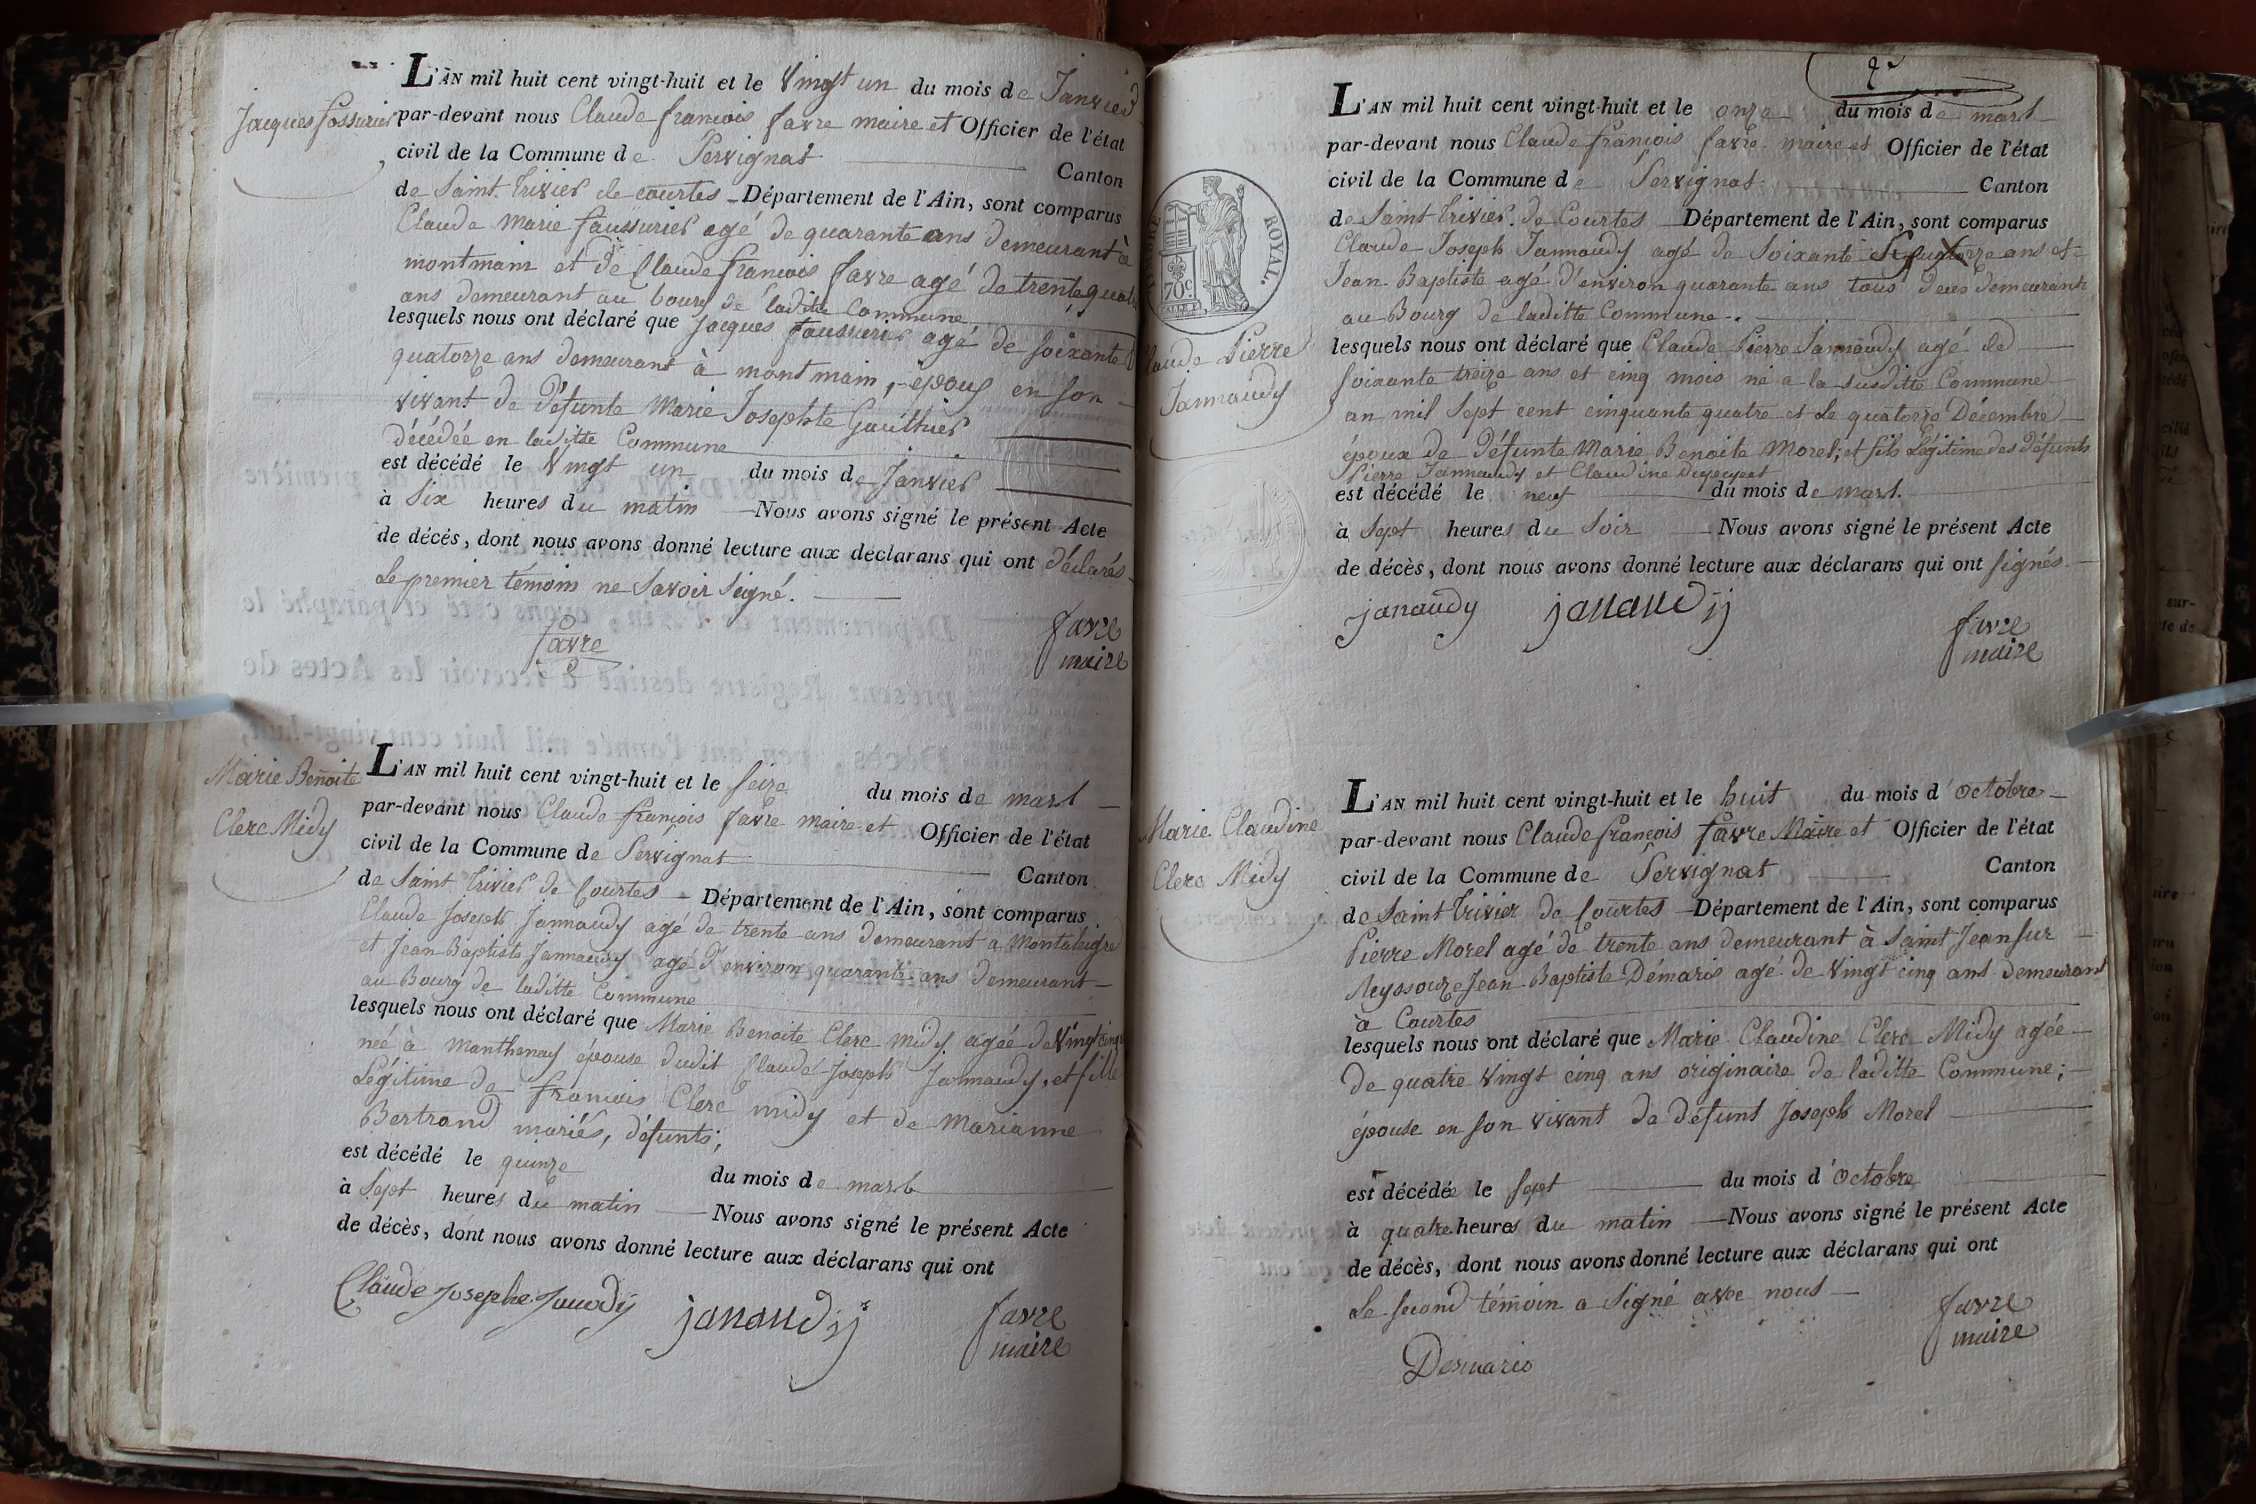 L'AN mil huit cent vingt-huit et le Vingt un du mois de Janvier
Jacques fossurier
par-devant nous Claude françois favre maire et Officier de l'état
civil de la Commune de Servignat Canton
de Saint Trivier de courtes Département de l'Ain, sont comparus
Claude Marie faussurier agé de quarante ans demeurant à
montmain et de Claude françois favre agé de trente quatre
ans demeurant au bourg de laditte Commune
lesquels nous ont déclaré que Jacques faussurier agé de soixante
quatorze ans demeurant à montmain, époux en son
vivant de défunte Marie Josephte Gauthier
décédée en laditte Commune
est décédé le Vingt un du mois de Janvier
à Six heures du matin Nous avons signé le présent Acte
de décés, dont nous avons donné lecture aux declarans qui ont déclarés
Le premier témoin ne Savoir Seigné.
favre
favre
maire
Marie Benoite
Clerc Midy
L'AN mil huit cent vingt-huit et le seize du mois de mars
par-devant nous Claude françois favre maire et Officier de l'état
civil de la Commune de Servignat Canton
de Saint Trivier de Courtes Département de l'Ain, sont comparus
Claude Joseph Jannaudy agé de trente ans demeurant a
et Jean Baptiste Jannaudy agé d'environ quarante ans demeurant
au Bourg de laditte Commune
lesquels nous ont déclaré que Marie Benoite Clerc midy agée de Vingt cinq
née à Manthenay épouse dudit Claude Joseph Jannaudy, et fille
Légitime de françois Clerc midy et de Marianne
Bertrand mariés, défunts;
est décédé le quinze du mois de mars
à Sept heures du matin Nous avons signé le présent Acte
de décès, dont nous avons donné lecture aux déclarans qui ont
Claude Josephe Janody janaudy
favre
maire
2e
L'AN mil huit cent vingt-huit et le onze du mois de mars
par-devant nous Claude françois favre maire et Officier de l'état
civil de la Commune de Servignat Canton
de Saint Trivier de Courtes Département de l'Ain, sont comparus
Claude Joseph Jannaudy agé de Soixante ans et
Jean Baptiste agé d'environ quarante ans tous deux demeurants
au Bourg de laditte Commune.
TIMBRE ROYAL.
70c.
Claude Pierre
Jannaudy
lesquels nous ont déclaré que Claude Pierre Jannaudy agé de
soixante treize ans et cinq mois né a la susditte Commune
an mil Sept cent cinquante quatre et Le quatorze Décembre
époux de défunte Marie Benoite Morel; et fils Légitime des défunts
Pierre Jannaudy et Claudine
est décédé le neuf du mois de mars.
à Sept heures du Soir Nous avons signé le présent Acte
de décès, dont nous avons donné lecture aux déclarans qui ont signés.
janaudy janaudy
favre
maire
Marie Claudine
Clerc Midy
L'AN mil huit cent vingt-huit et le huit du mois d'octobre
par-devant nous Claude françois favre Maire et Officier de l'état
civil de la Commune de Servignat Canton
de Saint Trivier de Courtes Département de l'Ain, sont comparus
Pierre Morel agé de trente ans demeurant à Saint Jean sur
Reyssouze Jean Baptiste Démaris agé de Vingt cinq ans demeurant
à Courtes
lesquels nous ont déclaré que Marie Claudine Clerc Midy agée
de quatre Vingt cinq ans originaire de laditte Commune;
épouse en son vivant de défunt Joseph Morel
est décédée le sept du mois d'octobre
à quatre heures du matin Nous avons signé le présent Acte
de décès, dont nous avons donné lecture aux déclarans qui ont
Le second témoin a Signé avec nous
favre
maire
Desmaris